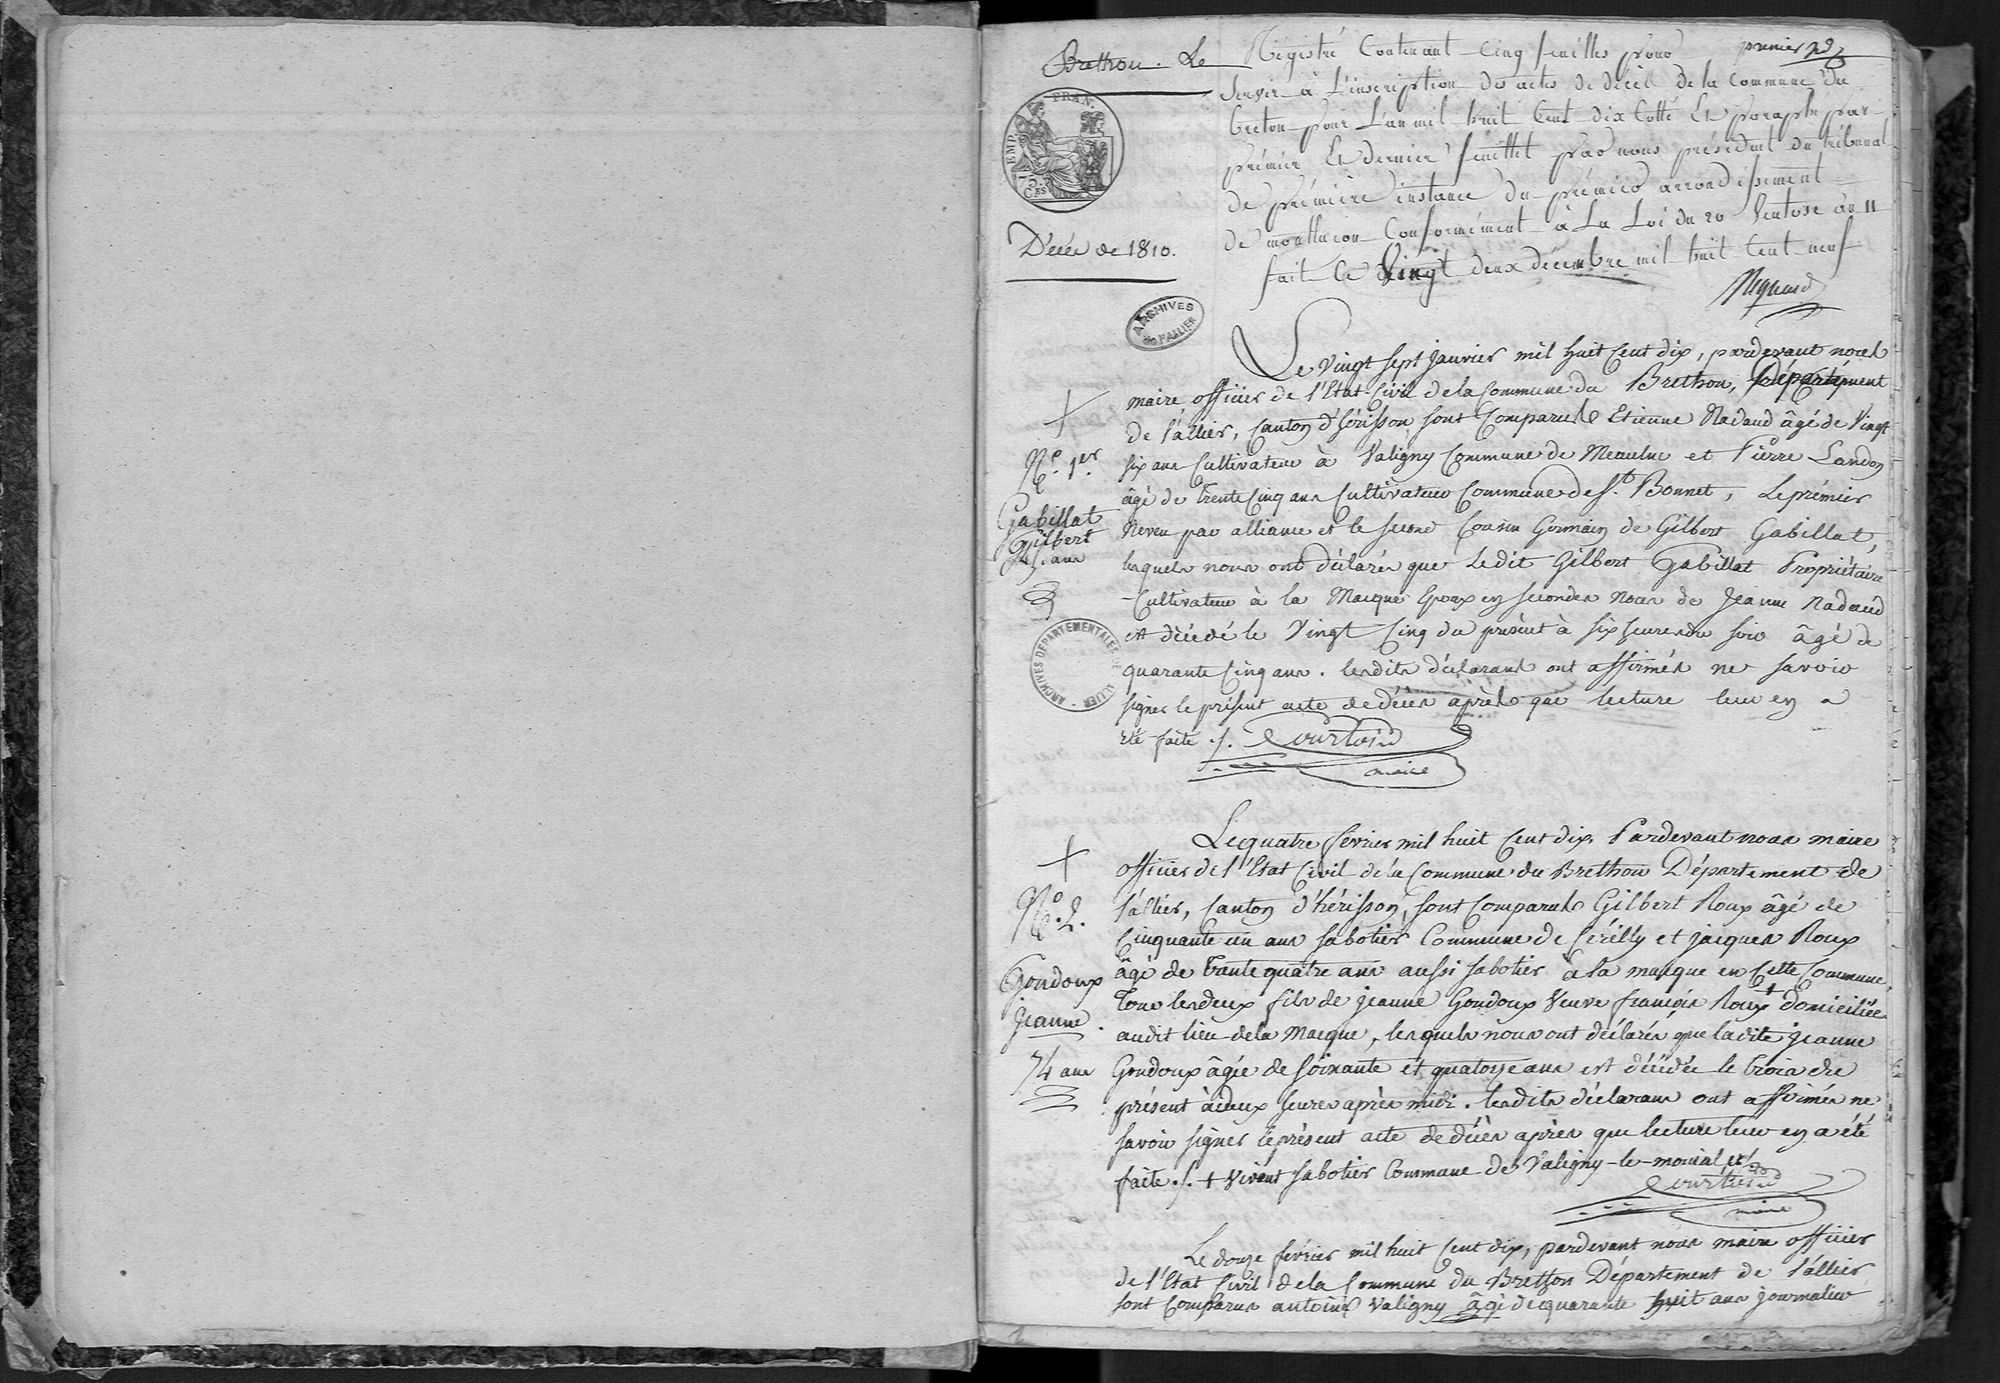 Brethon. Le
premier
Registre Contenant Cinq feuilles pour
Servir à L'inscription des actes de décès de la Commune du
breton pour L'an mil huit Cent dix Cotté Et paraphé par
prémier Et dernier feuillet par nous président du tribunal
de prémière instance du prémier arrondissement
de montlucon Conformément à La Loi du 20 Ventose an 11
fait le Vingt deux décembre mil huit Cent neuf
FRAN.
EMP.
75.
CES
Décès de 1810.
ARCHIVES
de l'ALLIER
Le Vingt sept janvier mil huit Cent dix, pardevant nous
maire officier de l'Etat Civil de la Commune du Brethon, Département
de l'allier, Canton d'hérisson sont Comparus Etienne Nadaud âgé de Vingt
six ans Cultivateur à Valigny Commune de Meaulne et Pierre Landon
âgé de trente Cinq ans Cultivateur Commune de St. Bonnet, Le prémier
Neveu par alliance et le second Cousin Germain de Gilbert Gabillat,
lesquels nous ont déclarés que Ledit Gilbert Gabillat Propriétaire
Cultivateur à la Macque Epoux en secondes Noces de Jeanne Nadaud
est décédé le Vingt Cinq du présent à six heures du soir âgé de
quarante Cinq ans. lesdits déclarans ont affirmés ne savoir
signer le présent acte de décès après que lecture leur en a
eté faite ./. Courtois
maire
+
No. 1er.
Gabillat
Gilbert
45. ans
ARCHIVES DEPARTEMENTALES DE L'ALLIER
Le quatre février mil huit Cent dix, Pardevant nous maire
officier de l'Etat Civil de la Commune du Brethon Département de
l'allier, Canton d'hérisson, sont Comparus Gilbert Roux âgé de
Cinquante un ans sabotier Commune de Cérilly et jacques Roux
âgé de trente quatre ans aussi sabotier à la macque en Cette Commune,
Tous les deux fils de jeanne Goudoux Veuve françois Roux + domiciliée
audit lieu de la Macque, lesquels nous ont déclarés que ladite jeanne
Goudoux âgée de soixante et quatorze ans est décédée le trois du
présent à deux heures après midi. lesdits déclarans ont affirmés ne
savoir signer le présent acte de décès après que lecture leur en a été
faite ./. + Vivant sabotier Commune de Valigny-le-monial
Courtois
maire
+
No. 2.
Goudoux
jeanne.
74 ans
Le douze février mil huit Cent dix, pardevant nous maire officier
de l'Etat Civil de la Commune du Brethon Département de l'allier
sont Comparus antoine Valigny âgé de quarante huit ans journalier